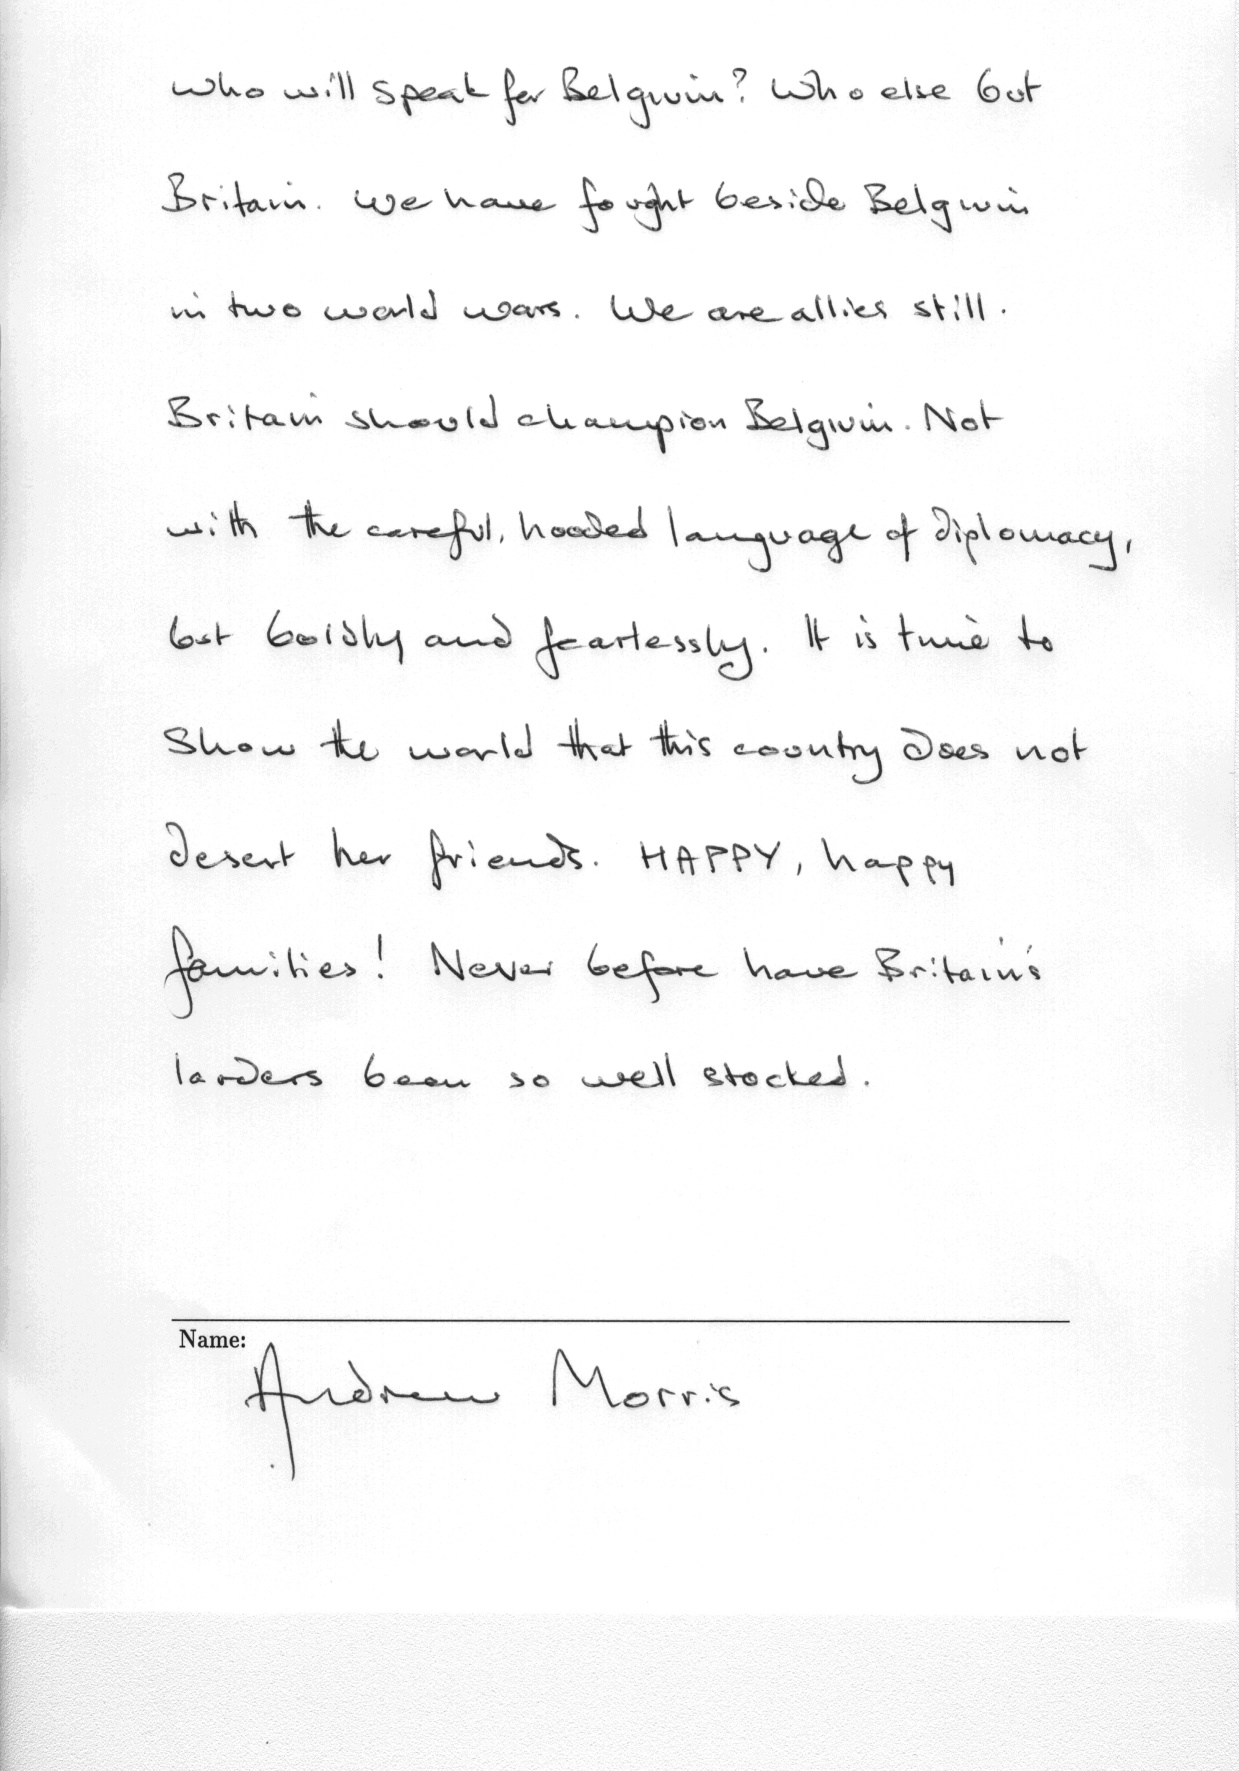 who will speak for Belgium? Who else but
Britain. We have fought beside Belgium
in two world wars. We are allies still.
Britain should champion Belgium. Not
with the careful, hooded language of diplomacy,
but boldly and fearlessly. It is time to
show the world that this country does not
desert her friends. HAPPY, happy
families! Never before have Britain's
larders been so well stocked.
Name:
Andrew Morris